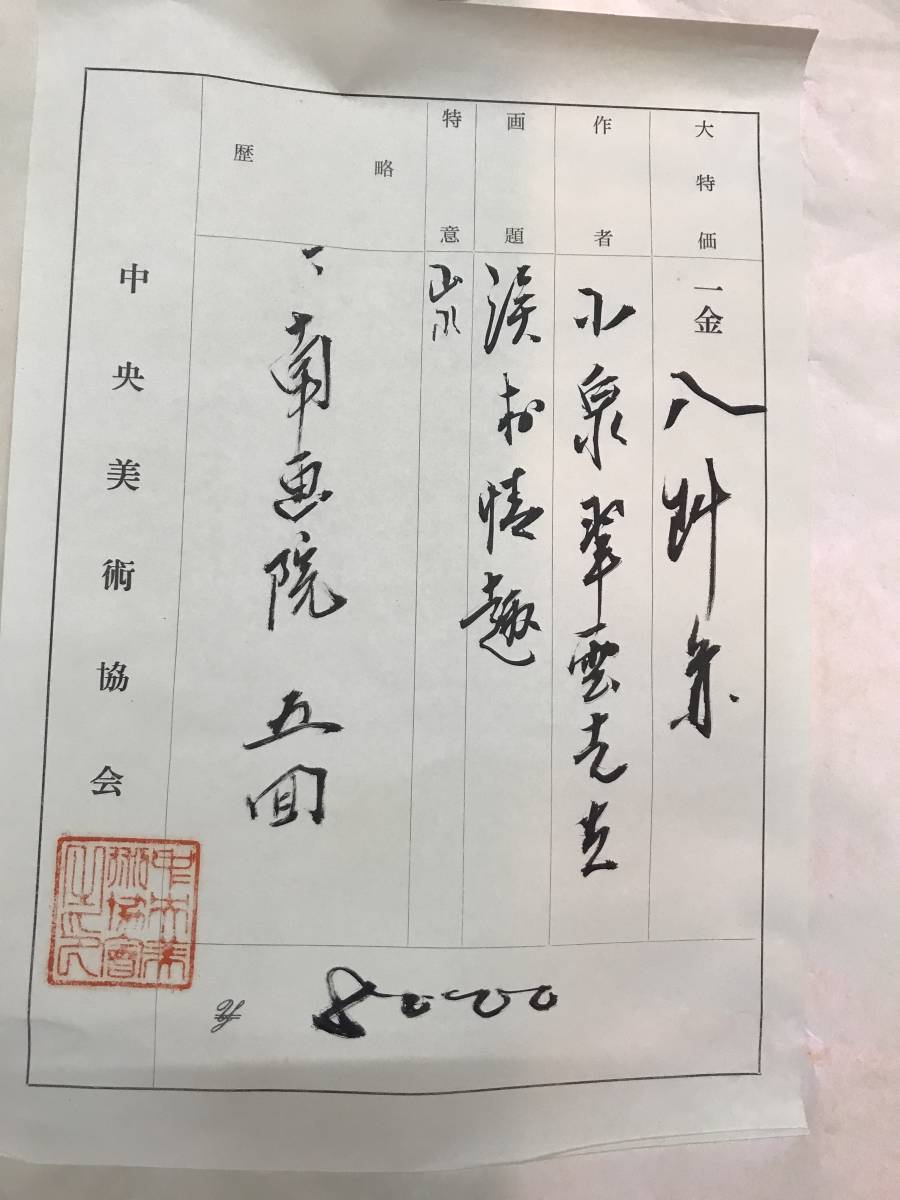 大特価 一金 八阡円
作者 小泉翠雲先生
画題 渓村情趣
特意 山水
略歴 一、南画院 五回
中央美術協会
中央美術協會之印
8000